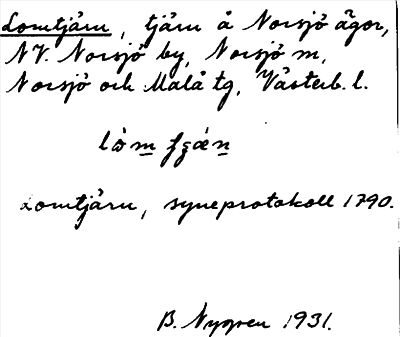 Lomtjärn, tjärn å Norsjö ägor,
NV. Norsjö by, Norsjö m,
Norsjö och Malå tg, Västerb. l.
Lomtjärn, syneprotokoll 1790.
B. Nygren 1931.